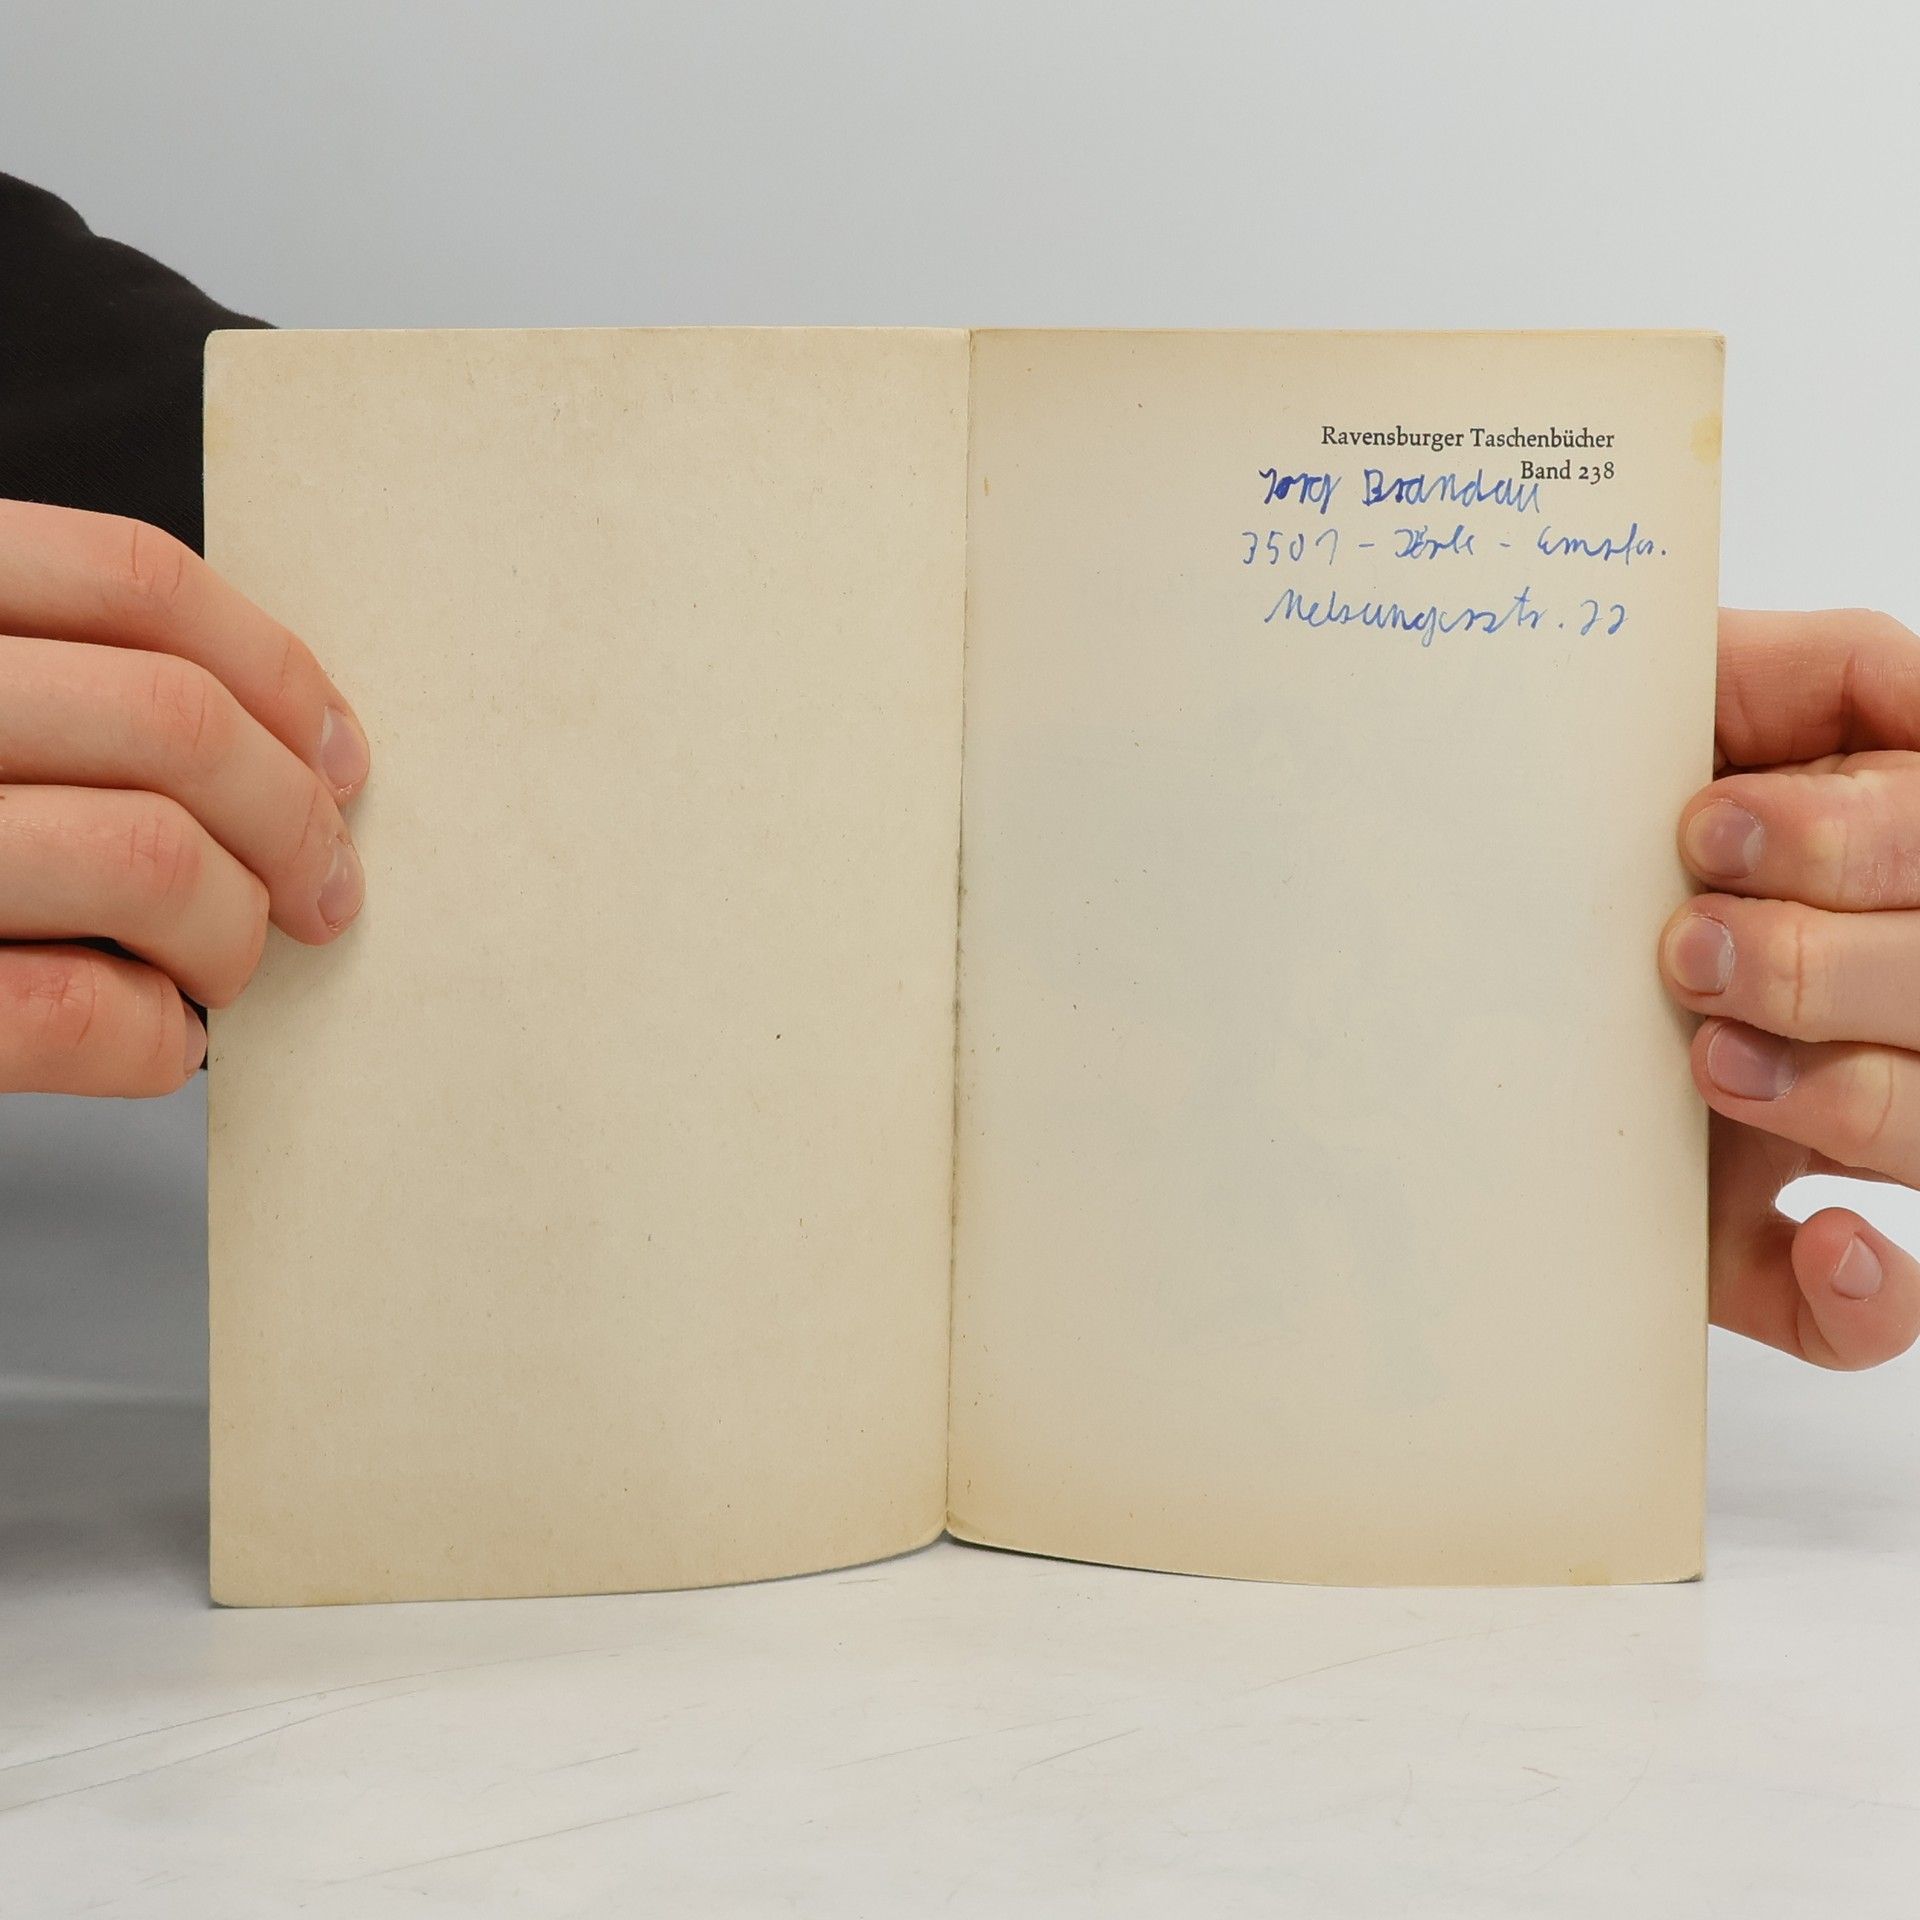 Ravensburger Taschenbücher
Band 238
Jorg Brandau
3501 -
Melsungerstr. 22